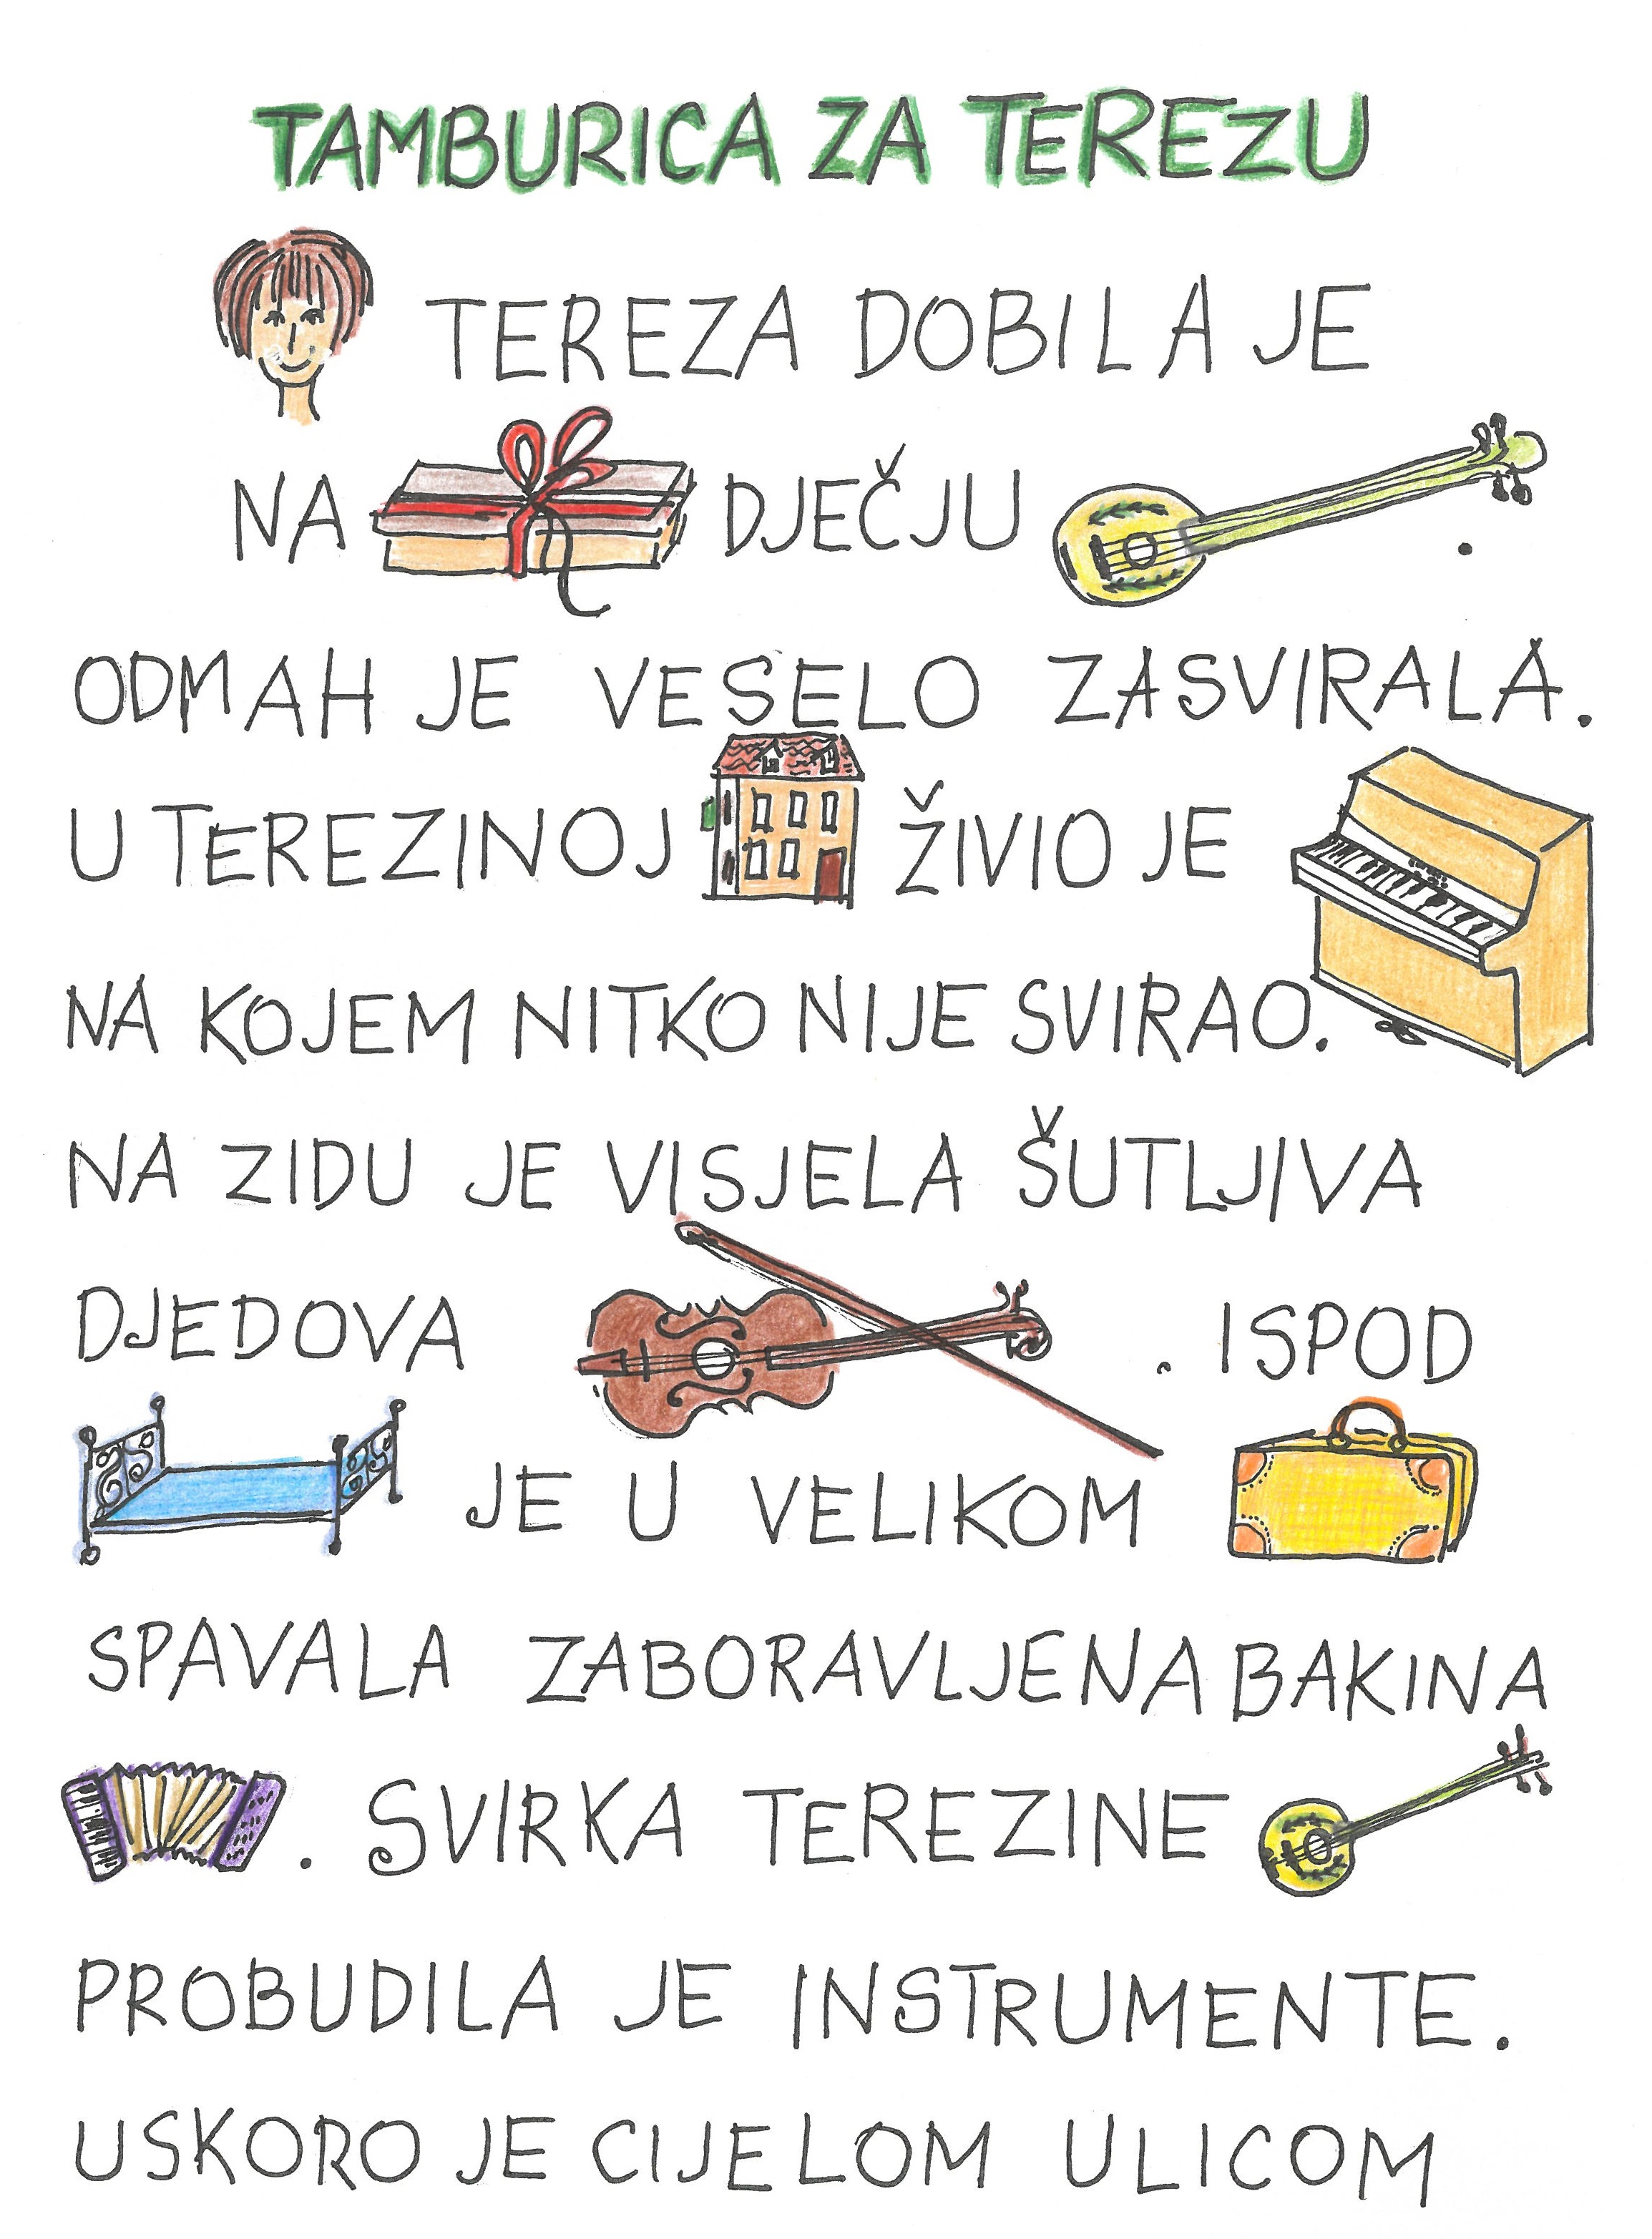 TAMBURICA ZA TEREZU
TEREZA DOBILA JE
NA DJEČJU .
ODMAH JE VESELO ZASVIRALA.
U TEREZINOJ ŽIVIO JE
NA KOJEM NITKO NIJE SVIRAO.
NA ZIDU JE VISJELA ŠUTLJIVA
DJEDOVA . ISPOD
JE U VELIKOM
SPAVALA ZABORAVLJENA BAKINA
. SVIRKA TEREZINE
PROBUDILA JE INSTRUMENTE.
USKORO JE CIJELOM ULICOM